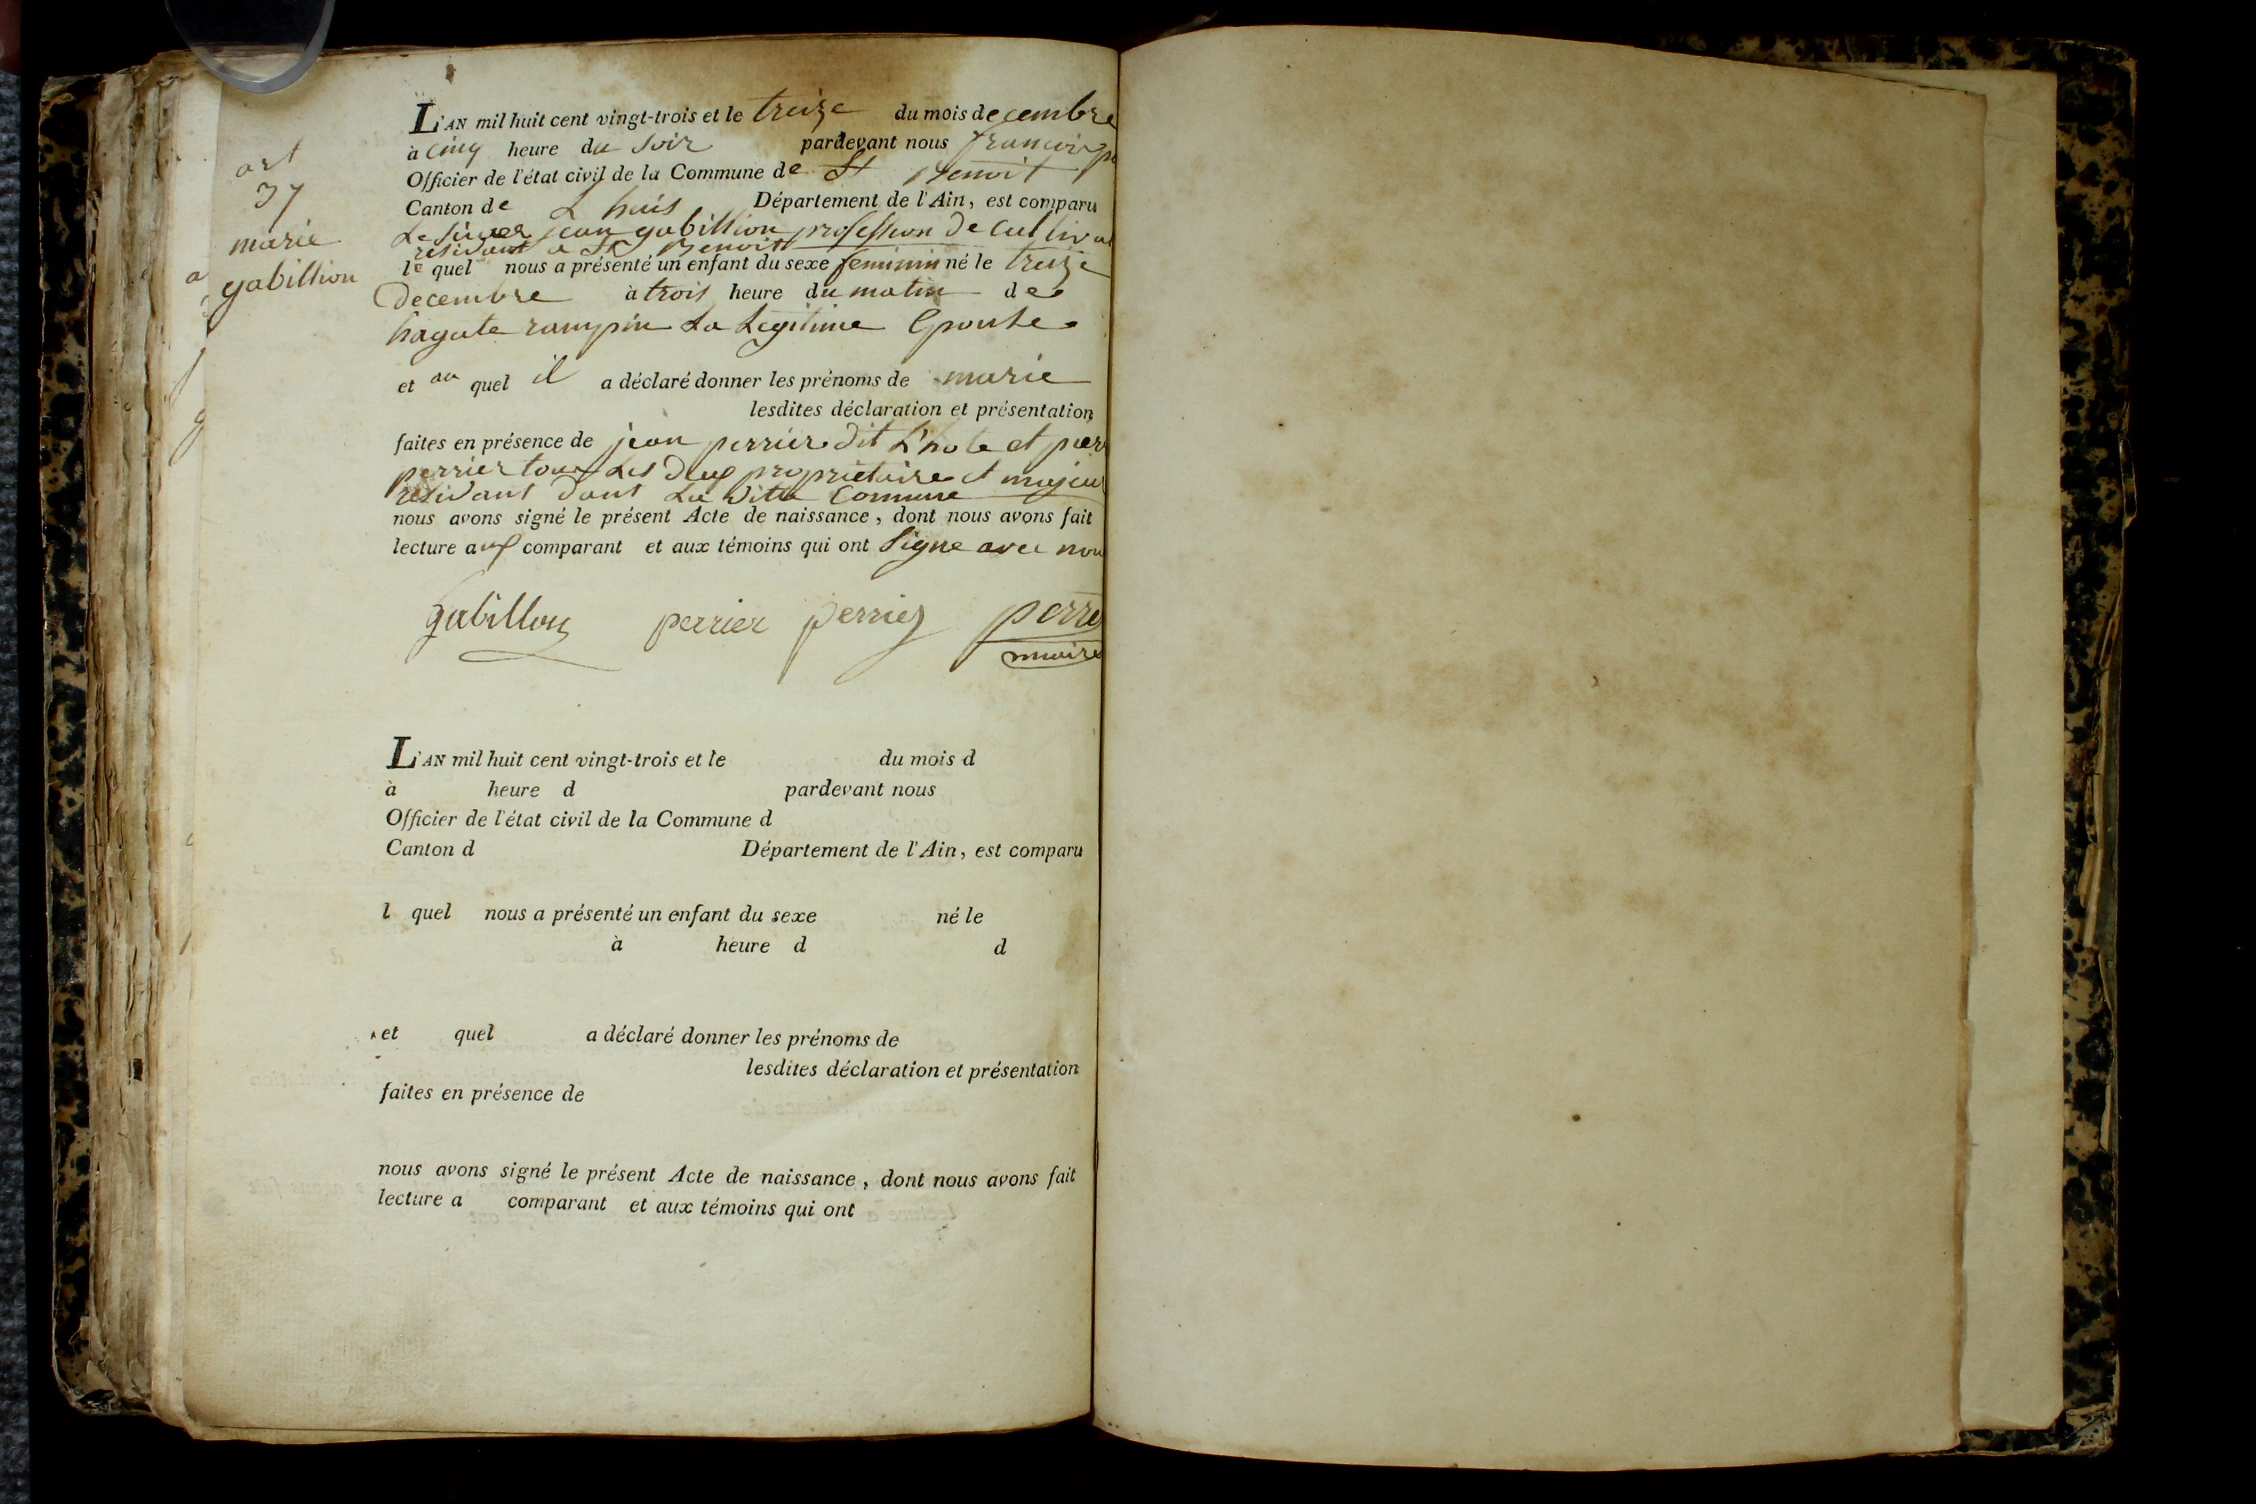 art
37
marie
gabillion
L'AN mil huit cent vingt-trois et le treize du mois decembre
à cinq heure du soir pardevant nous francois
Officier de l'état civil de la Commune de St Benoit
Canton de L huis Département de l'Ain, est comparu
Le Sieur jean gabillion profession de Cultivat
residant a St Benoit
le quel nous a présenté un enfant du sexe feminin né le treize
Decembre à trois heure du matin de
hagate rampin La Legitime Epouse
et au quel il a déclaré donner les prénoms de marie
lesdites déclaration et présentation
faites en présence de jean perrier dit L'hote et pierr
perrier tous Les deux proprietaire et majeur
residant dans La ditte Commune
nous avons signé le présent Acte de naissance, dont nous avons fait
lecture aux comparant et aux témoins qui ont Signe avec nou
gabillon perrier perrier perre
maire
L'AN mil huit cent vingt-trois et le du mois d
à heure d pardevant nous
Officier de l'état civil de la Commune d
Canton d Département de l'Ain, est comparu
l quel nous a présenté un enfant du sexe né le
à heure d d
et quel a déclaré donner les prénoms de
lesdites déclaration et présentation
faites en présence de
nous avons signé le présent Acte de naissance, dont nous avons fait
lecture a comparant et aux témoins qui ont